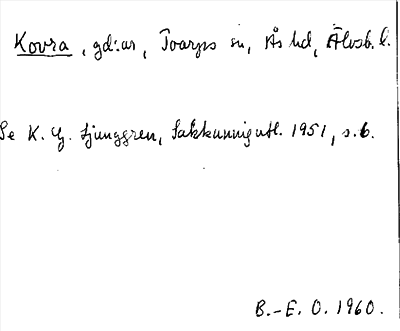 Kovra, gd:ar, Toarps sn, Ås hd, Älvsb. l.
Se K. G. Ljunggren, Sakkunnigutl. 1951, s. 6.
B.-E. O. 1960.